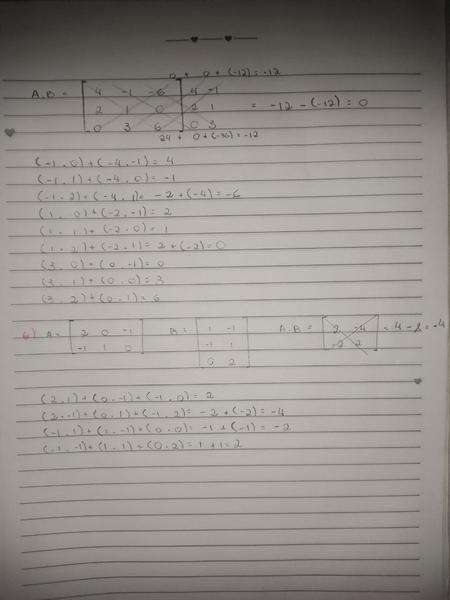 0 + 0 + (-12) = -12
A.B = [4 -1 -6] 4 -1
[2 1 0] 2 1 = -12 - (-12) = 0
[0 3 6] 0 3
24 + 0 + (-36) = -12
(-1 . 0) + (-4 . -1) = 4
(-1 . 1) + (-4 . 0) = -1
(-1 . 2) + (-4 . 1) = -2 + (-4) = -6
(1 . 0) + (-2 . -1) = 2
(1 . 1) + (-2 . 0) = 1
(1 . 2) + (-2 . 1) = 2 + (-2) = 0
(3 . 0) + (0 . -1) = 0
(3 . 1) + (0 . 0) = 3
(3 . 2) + (0 . 1) = 6
6) A = [2 0 -1] B = [1 -1] A.B = [2 -4] = 4 - 8 = -4
[-1 1 0] [-1 1] [-2 2]
[0 2]
(2 . 1) + (0 . -1) + (-1 . 0) = 2
(2 . -1) + (0 . 1) + (-1 . 2) = -2 + (-2) = -4
(-1 . 1) + (1 . -1) + (0 . 0) = -1 + (-1) = -2
(-1 . -1) + (1 . 1) + (0 . 2) = 1 + 1 = 2